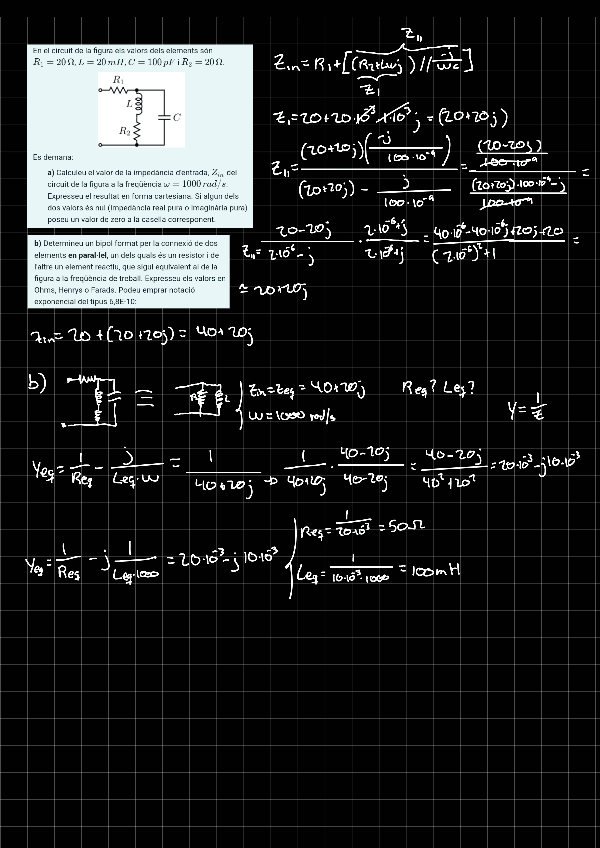 En el circuit de la figura els valors dels elements són
R₁ = 20 Ω, L = 20 mH, C = 100 pF i R₂ = 20 Ω.
R₁
L
C
R₂
Es demana:
a) Calculeu el valor de la impedància d'entrada, Z_in del
circuit de la figura a la freqüència ω = 1000 rad/s.
Expresseu el resultat en forma cartesiana. Si algun dels
dos valors és nul (impedància real pura o imaginària pura)
poseu un valor de zero a la casella corresponent.
b) Determineu un bipol format per la connexió de dos
elements en paral·lel, un dels quals és un resistor i de
l'altre un element reactiu, que sigui equivalent al de la
figura a la freqüència de treball. Expresseu els valors en
Ohms, Henrys o Farads. Podeu emprar notació
exponencial del tipus 6,8E-10:
Z₁₁
Zin = R₁ + [(R₂+Lωj) // -j/ωC]
Z₁
Z₁ = 20+20·10⁻³·1·10³ j = (20+20j)
Z₁₁ = (20+20j)(-j/100·10⁻⁹) / ((20+20j) - j/100·10⁻⁹) = ((20-20j)/100·10⁻⁹) / (((20+20j)·100·10⁻⁹-j)/100·10⁻⁹) =
Z₁₁ = (20-20j)/(2·10⁻⁶-j) · (2·10⁻⁶+j)/(2·10⁻⁶+j) = (40·10⁻⁶-40·10⁻⁶j+20j+20)/((2·10⁻⁶)²+1) =
≃ 20+20j
Zin = 20 + (20+20j) = 40+20j
b)
≡
R
L
Zin = Zeq = 40+20j
Req? Leq?
ω = 1000 rad/s
Y = 1/Z
Yeq = 1/Req - j/(Leq·ω) = 1/(40+20j) → 1/(40+20j) · (40-20j)/(40-20j) = (40-20j)/(40²+20²) = 20·10⁻³-j10·10⁻³
Yeq = 1/Req - j 1/(Leq·1000) = 20·10⁻³-j10·10⁻³
Req = 1/(20·10⁻³) = 50Ω
Leq = 1/(10·10⁻³·1000) = 100mH